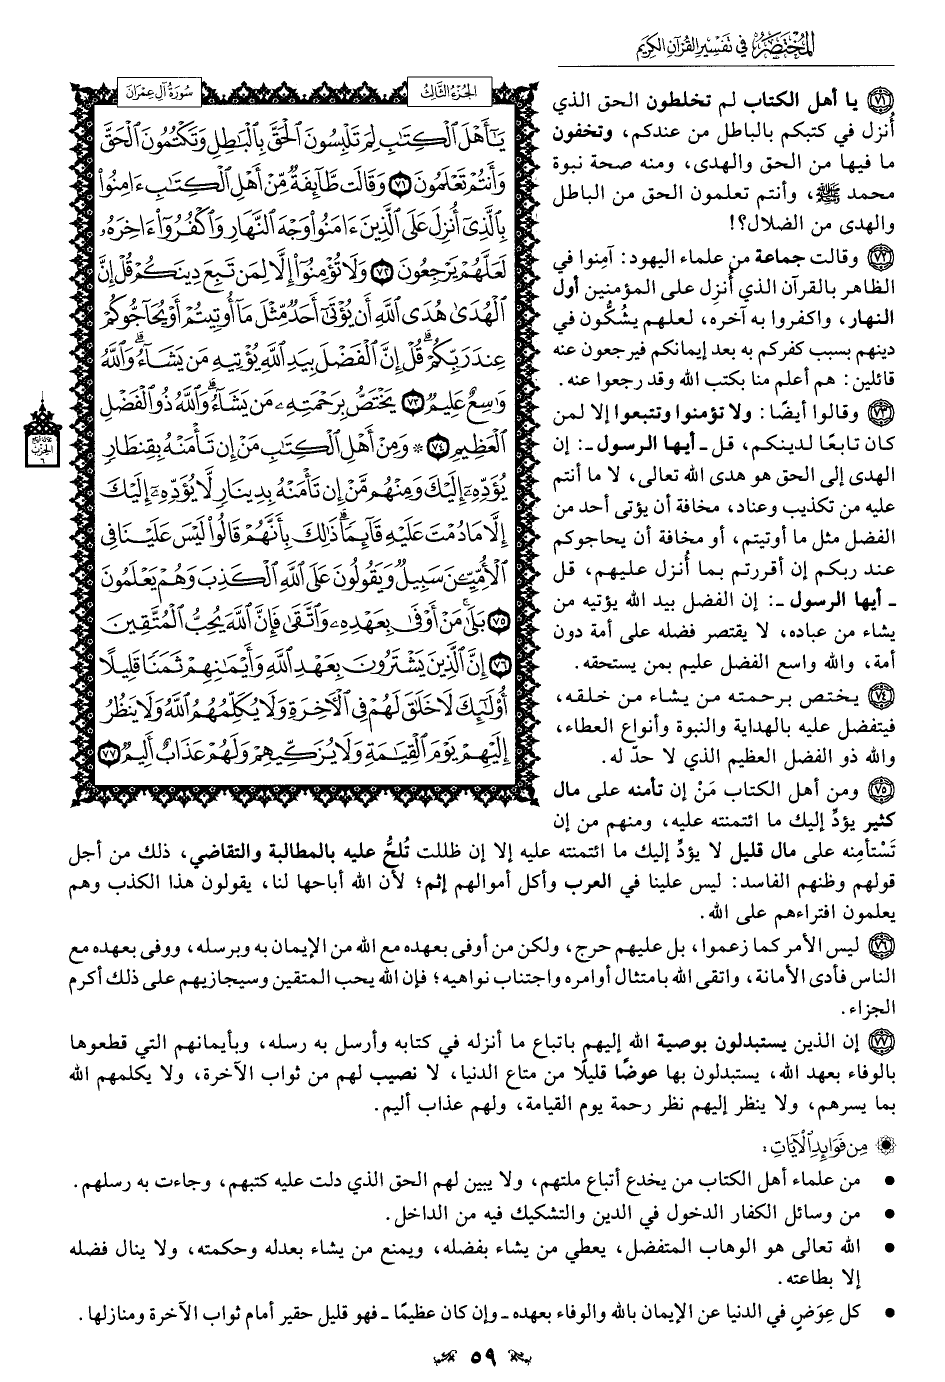 المختصر في تفسير القرآن الكريم
سورة آل عمران
الجزء الثالث
يَٰٓأَهۡلَ ٱلۡكِتَٰبِ لِمَ تَلۡبِسُونَ ٱلۡحَقَّ بِٱلۡبَٰطِلِ وَتَكۡتُمُونَ ٱلۡحَقَّ
وَأَنتُمۡ تَعۡلَمُونَ ٧١ وَقَالَت طَّآئِفَةٞ مِّنۡ أَهۡلِ ٱلۡكِتَٰبِ ءَامِنُواْ
بِٱلَّذِيٓ أُنزِلَ عَلَى ٱلَّذِينَ ءَامَنُواْ وَجۡهَ ٱلنَّهَارِ وَٱكۡفُرُوٓاْ ءَاخِرَهُۥ
لَعَلَّهُمۡ يَرۡجِعُونَ ٧٢ وَلَا تُؤۡمِنُوٓاْ إِلَّا لِمَن تَبِعَ دِينَكُمۡ قُلۡ إِنَّ
ٱلۡهُدَىٰ هُدَى ٱللَّهِ أَن يُؤۡتَىٰٓ أَحَدٞ مِّثۡلَ مَآ أُوتِيتُمۡ أَوۡ يُحَآجُّوكُمۡ
عِندَ رَبِّكُمۡۗ قُلۡ إِنَّ ٱلۡفَضۡلَ بِيَدِ ٱللَّهِ يُؤۡتِيهِ مَن يَشَآءُۗ وَٱللَّهُ
وَٰسِعٌ عَلِيمٞ ٧٣ يَخۡتَصُّ بِرَحۡمَتِهِۦ مَن يَشَآءُۗ وَٱللَّهُ ذُو ٱلۡفَضۡلِ
ٱلۡعَظِيمِ ٧٤ ۞ وَمِنۡ أَهۡلِ ٱلۡكِتَٰبِ مَنۡ إِن تَأۡمَنۡهُ بِقِنطَارٖ
يُؤَدِّهِۦٓ إِلَيۡكَ وَمِنۡهُم مَّنۡ إِن تَأۡمَنۡهُ بِدِينَارٖ لَّا يُؤَدِّهِۦٓ إِلَيۡكَ
إِلَّا مَا دُمۡتَ عَلَيۡهِ قَآئِمٗاۗ ذَٰلِكَ بِأَنَّهُمۡ قَالُواْ لَيۡسَ عَلَيۡنَا فِي
ٱلۡأُمِّيِّـۧنَ سَبِيلٞ وَيَقُولُونَ عَلَى ٱللَّهِ ٱلۡكَذِبَ وَهُمۡ يَعۡلَمُونَ
٧٥ بَلَىٰۚ مَنۡ أَوۡفَىٰ بِعَهۡدِهِۦ وَٱتَّقَىٰ فَإِنَّ ٱللَّهَ يُحِبُّ ٱلۡمُتَّقِينَ
٧٦ إِنَّ ٱلَّذِينَ يَشۡتَرُونَ بِعَهۡدِ ٱللَّهِ وَأَيۡمَٰنِهِمۡ ثَمَنٗا قَلِيلًا
أُوْلَٰٓئِكَ لَا خَلَٰقَ لَهُمۡ فِي ٱلۡأٓخِرَةِ وَلَا يُكَلِّمُهُمُ ٱللَّهُ وَلَا يَنظُرُ
إِلَيۡهِمۡ يَوۡمَ ٱلۡقِيَٰمَةِ وَلَا يُزَكِّيهِمۡ وَلَهُمۡ عَذَابٌ أَلِيمٞ ٧٧
الحزب
٦
٧١ يا أهل الكتاب لم تخلطون الحق الذي
أُنزل في كتبكم بالباطل من عندكم، وتخفون
ما فيها من الحق والهدى، ومنه صحة نبوة
محمد ﷺ، وأنتم تعلمون الحق من الباطل
والهدى من الضلال؟!
٧٢ وقالت جماعة من علماء اليهود: آمِنوا في
الظاهر بالقرآن الذي أُنزِل على المؤمنين أول
النهار، واكفروا به آخره، لعلهم يشُكُّون في
دينهم بسبب كفركم به بعد إيمانكم فيرجعون عنه
قائلين: هم أعلم منا بكتب الله وقد رجعوا عنه.
٧٣ وقالوا أيضًا: ولا تؤمنوا وتتبعوا إلا لمن
كان تابعًا لدينكم، قل ـ أيها الرسول ـ: إن
الهدى إلى الحق هو هدى الله تعالى، لا ما أنتم
عليه من تكذيب وعناد، مخافة أن يؤتى أحد من
الفضل مثل ما أوتيتم، أو مخافة أن يحاجوكم
عند ربكم إن أقررتم بما أُنزل عليهم، قل
ـ أيها الرسول ـ: إن الفضل بيد الله يؤتيه من
يشاء من عباده، لا يقتصر فضله على أمة دون
أمة، والله واسع الفضل عليم بمن يستحقه.
٧٤ يختص برحمته من يشاء من خلقه،
فيتفضل عليه بالهداية والنبوة وأنواع العطاء،
والله ذو الفضل العظيم الذي لا حدّ له.
٧٥ ومن أهل الكتاب مَنْ إن تأمنه على مال
كثير يؤدِّ إليك ما ائتمنته عليه، ومنهم من إن
تَسْتأمِنه على مال قليل لا يؤدِّ إليك ما ائتمنته عليه إلا إن ظللت تُلحُّ عليه بالمطالبة والتقاضي، ذلك من أجل
قولهم وظنهم الفاسد: ليس علينا في العرب وأكل أموالهم إثم؛ لأن الله أباحها لنا، يقولون هذا الكذب وهم
يعلمون افتراءهم على الله.
٧٦ ليس الأمر كما زعموا، بل عليهم حرج، ولكن من أوفى بعهده مع الله من الإيمان به وبرسله، ووفى بعهده مع
الناس فأدى الأمانة، واتقى الله بامتثال أوامره واجتناب نواهيه؛ فإن الله يحب المتقين وسيجازيهم على ذلك أكرم
الجزاء.
٧٧ إن الذين يستبدلون بوصية الله إليهم باتباع ما أنزله في كتابه وأرسل به رسله، وبأيمانهم التي قطعوها
بالوفاء بعهد الله، يستبدلون بها عوضًا قليلًا من متاع الدنيا، لا نصيب لهم من ثواب الآخرة، ولا يكلمهم الله
بما يسرهم، ولا ينظر إليهم نظر رحمة يوم القيامة، ولهم عذاب أليم.
من فوائد الآيات:
• من علماء أهل الكتاب من يخدع أتباع ملتهم، ولا يبين لهم الحق الذي دلت عليه كتبهم، وجاءت به رسلهم.
• من وسائل الكفار الدخول في الدين والتشكيك فيه من الداخل.
• الله تعالى هو الوهاب المتفضل، يعطي من يشاء بفضله، ويمنع من يشاء بعدله وحكمته، ولا ينال فضله
إلا بطاعته.
• كل عِوَضٍ في الدنيا عن الإيمان بالله والوفاء بعهده ـ وإن كان عظيمًا ـ فهو قليل حقير أمام ثواب الآخرة ومنازلها.
٥٩